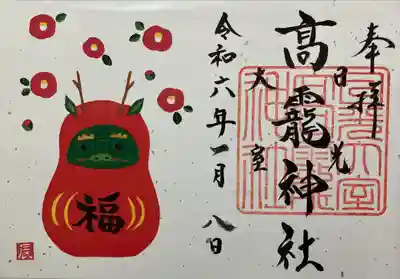 奉拝
日光
大室
高靇神社
令和六年一月八日
福
辰